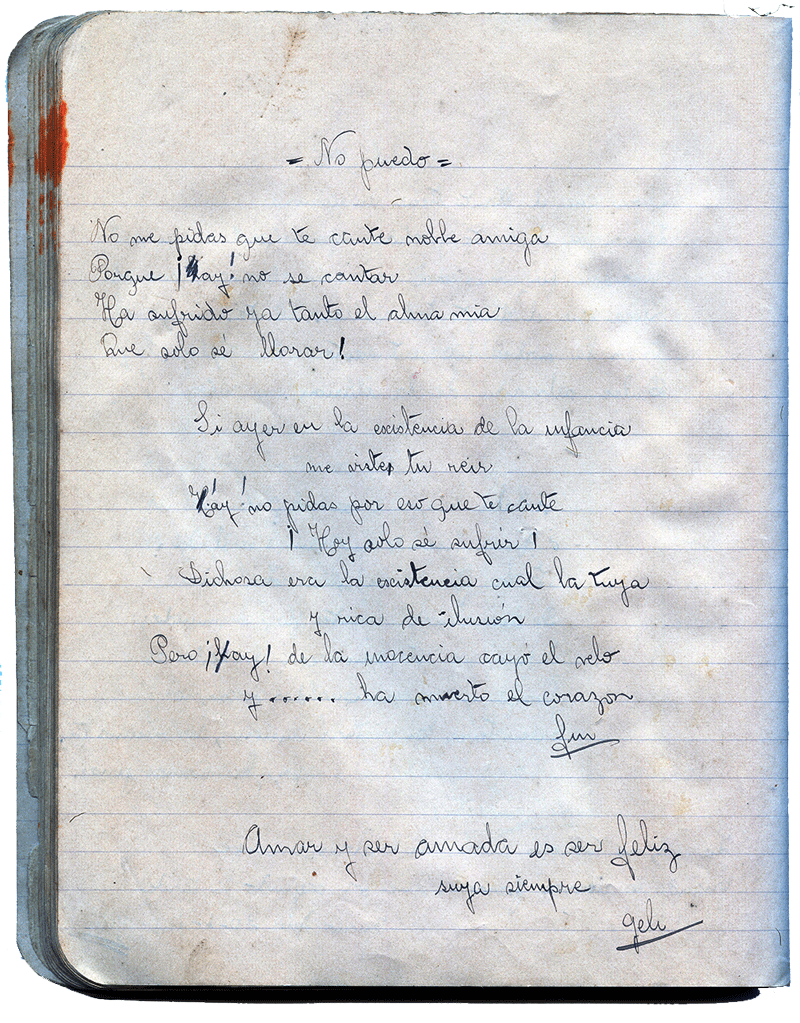 = No puedo =
No me pidas que te cante noble amiga
Porque ¡ay! no se cantar
Ha sufrido ya tanto el alma mia
Que solo sé llorar!
Si ayer en la escistencia de la infancia
me vistes tu reir
¡áy! no pidas por eso que te cante
¡Hoy solo sé sufrir!
Dichosa era la escistencia cual la tuya
y rica de ilusión
Pero ¡ay! de la inocencia cayó el velo
y ...... ha muerto el corazon
fin
Amar y ser amada es ser feliz
suya siempre
geli